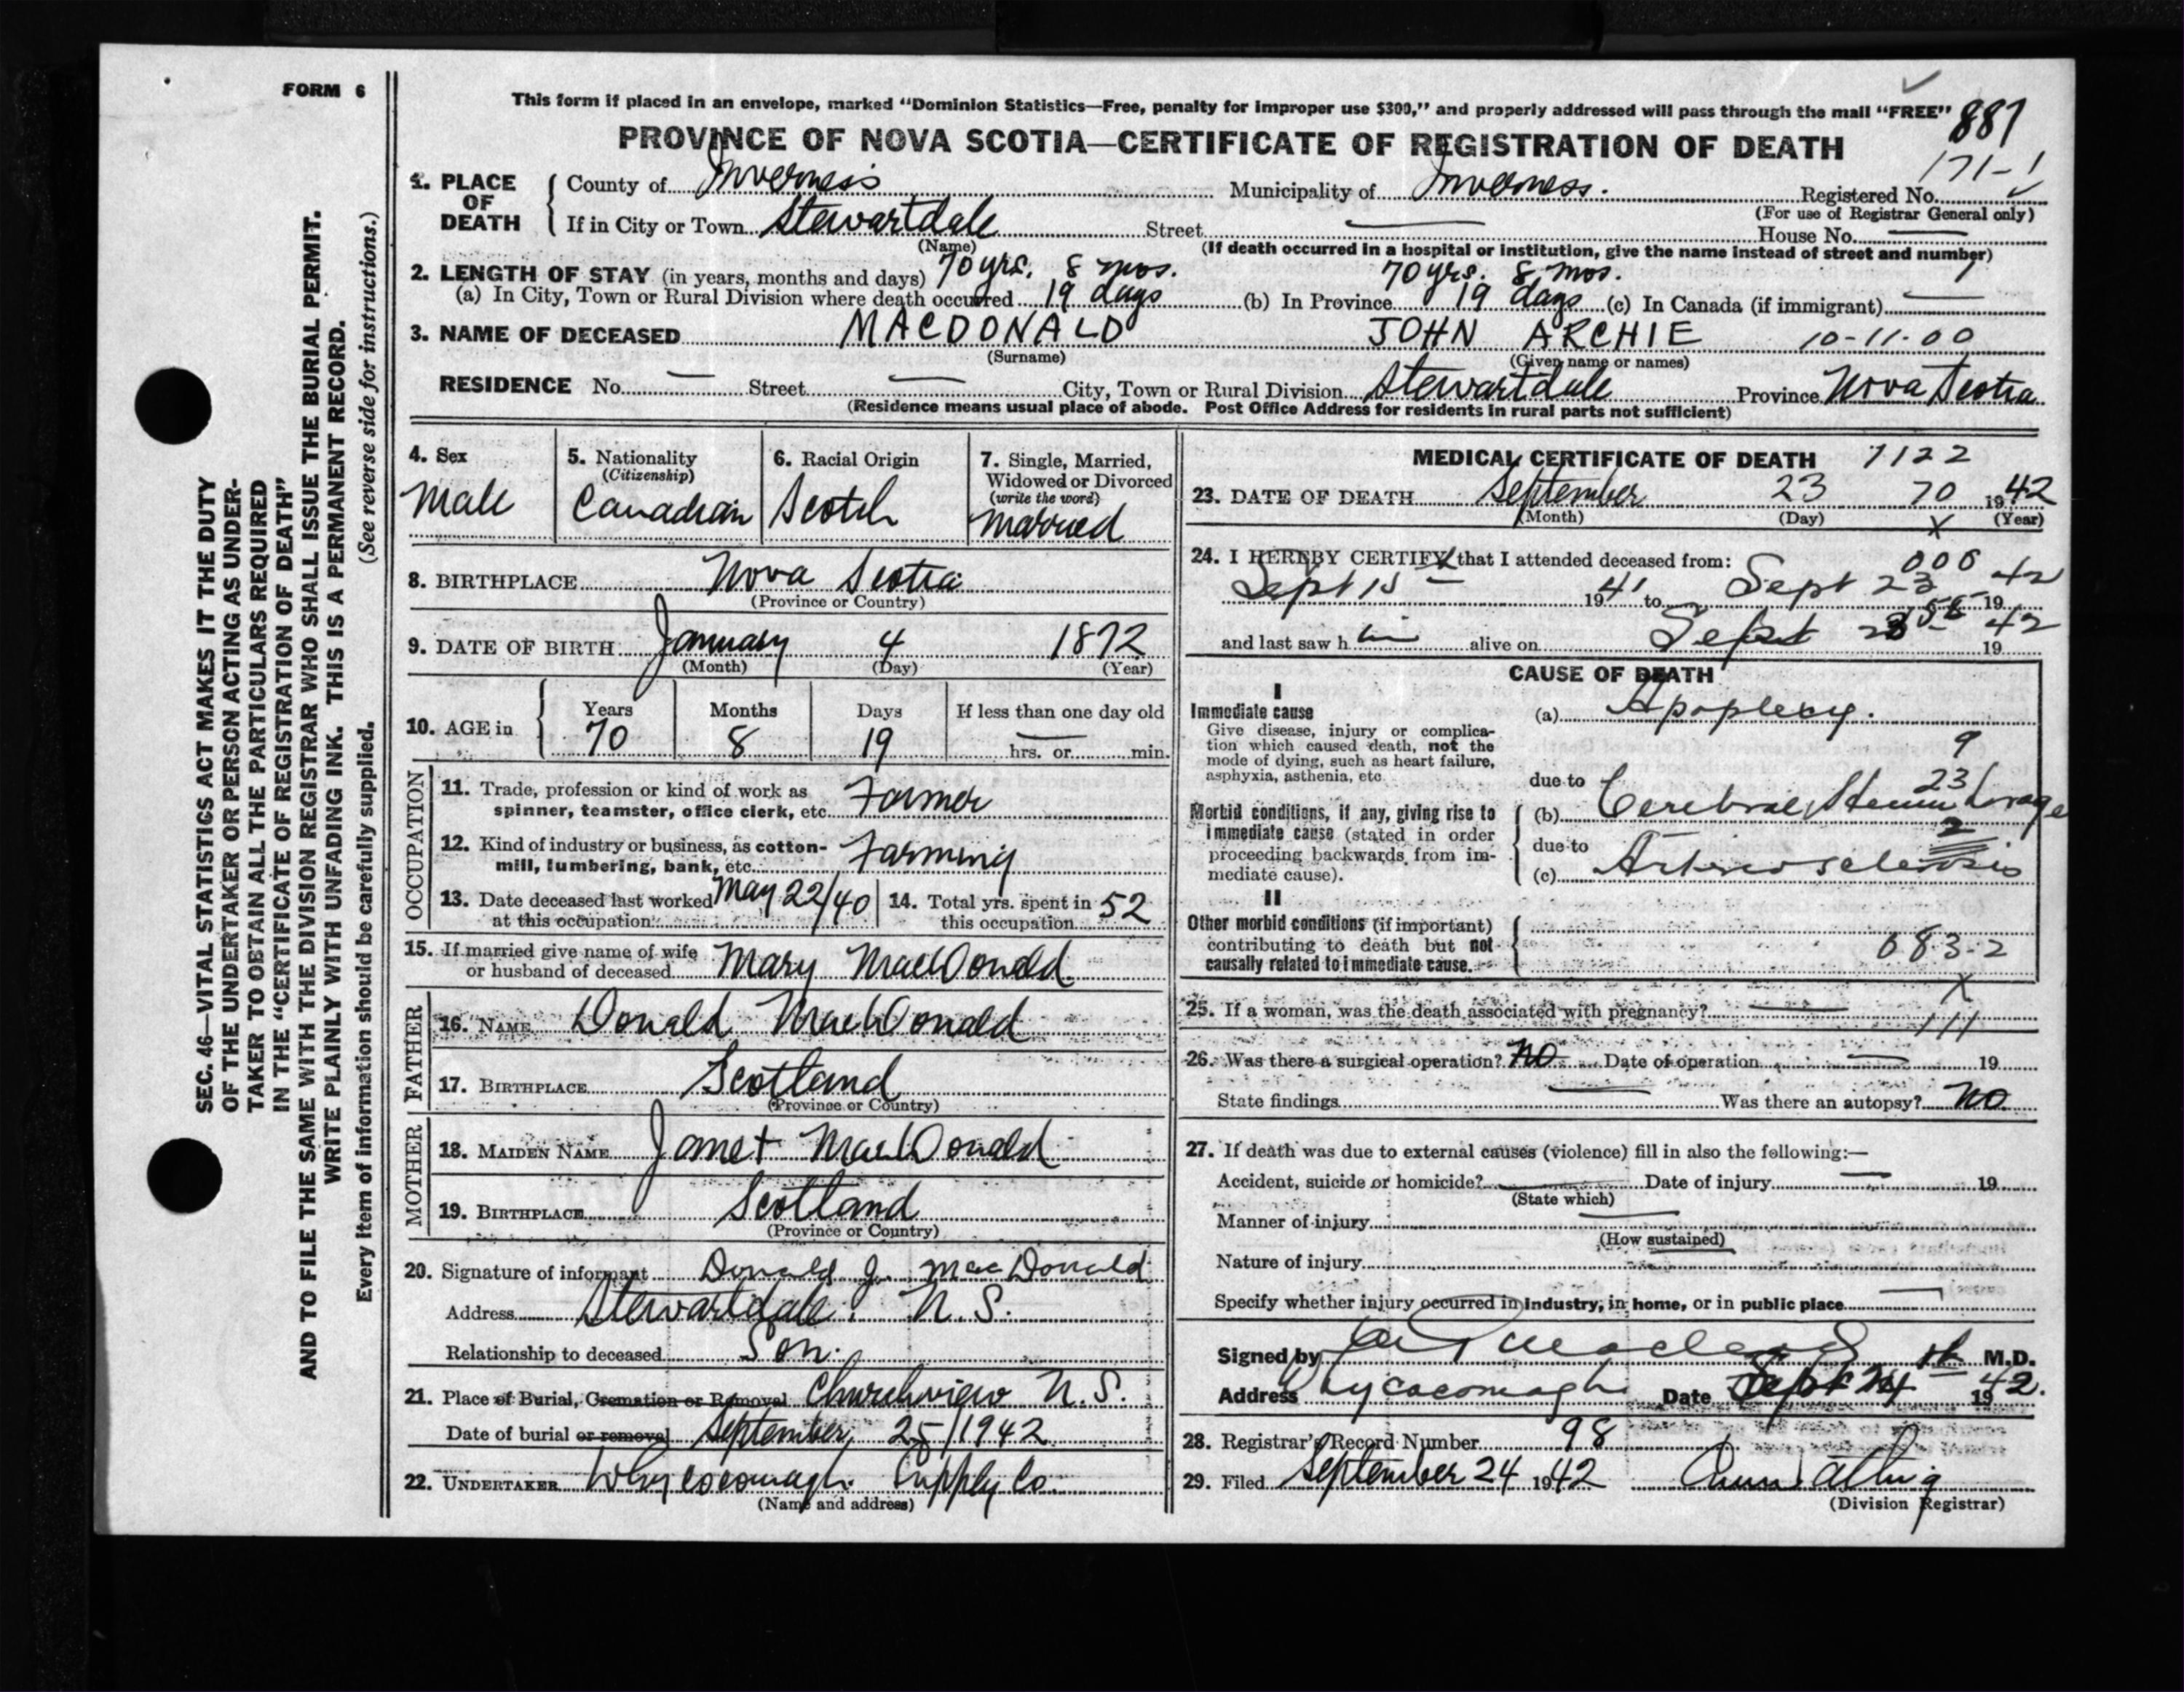 FORM 6
SEC. 46—VITAL STATISTICS ACT MAKES IT THE DUTY
OF THE UNDERTAKER OR PERSON ACTING AS UNDER-
TAKER TO OBTAIN ALL THE PARTICULARS REQUIRED
IN THE "CERTIFICATE OF REGISTRATION OF DEATH"
AND TO FILE THE SAME WITH THE DIVISION REGISTRAR WHO SHALL ISSUE THE BURIAL PERMIT.
WRITE PLAINLY WITH UNFADING INK. THIS IS A PERMANENT RECORD.
Every item of information should be carefully supplied. (See reverse side for instructions.)
This form if placed in an envelope, marked "Dominion Statistics—Free, penalty for improper use $300," and properly addressed will pass through the mail "FREE"
887
PROVINCE OF NOVA SCOTIA—CERTIFICATE OF REGISTRATION OF DEATH
171-1
1. PLACE OF DEATH County of Inverness Municipality of Inverness. Registered No.
(For use of Registrar General only)
If in City or Town Stewartdale Street — House No. —
(Name) (If death occurred in a hospital or institution, give the name instead of street and number)
2. LENGTH OF STAY (in years, months and days) 70 yrs. 8 mos. 70 yrs. 8 mos.
(a) In City, Town or Rural Division where death occurred 19 days (b) In Province 19 days (c) In Canada (if immigrant) —
3. NAME OF DECEASED MACDONALD JOHN ARCHIE 10-11-00
(Surname) (Given name or names)
RESIDENCE No. — Street — City, Town or Rural Division Stewartdale Province Nova Scotia
(Residence means usual place of abode. Post Office Address for residents in rural parts not sufficient)
4. Sex Male
5. Nationality (Citizenship) Canadian
6. Racial Origin Scotch
7. Single, Married, Widowed or Divorced (write the word) Married
8. BIRTHPLACE Nova Scotia
(Province or Country)
9. DATE OF BIRTH January 4 1872
(Month) (Day) (Year)
10. AGE in Years 70 Months 8 Days 19 If less than one day old — hrs. or min.
OCCUPATION
11. Trade, profession or kind of work as
spinner, teamster, office clerk, etc. Farmer
12. Kind of industry or business, as cotton-
mill, lumbering, bank, etc. Farming
13. Date deceased last worked at this occupation May 22/40
14. Total yrs. spent in this occupation 52
15. If married give name of wife
or husband of deceased Mary MacDonald
FATHER
16. NAME Donald MacDonald
17. BIRTHPLACE Scotland
(Province or Country)
MOTHER
18. MAIDEN NAME Janet MacDonald
19. BIRTHPLACE Scotland
(Province or Country)
20. Signature of informant Donald J. MacDonald
Address Stewartdale. N.S.
Relationship to deceased Son.
21. Place of Burial, Cremation or Removal Churchview N.S.
Date of burial or removal September 25/1942
22. UNDERTAKER Whycocomagh Supply Co.
(Name and address)
MEDICAL CERTIFICATE OF DEATH 1122
23. DATE OF DEATH September 23 70 1942
(Month) (Day) X (Year)
24. I HEREBY CERTIFY that I attended deceased from: 006
Sept 15 1941 to Sept 23 1942
and last saw him alive on Sept 1942
CAUSE OF DEATH
I
Immediate cause (a) Apoplexy.
Give disease, injury or complica-
tion which caused death, not the
mode of dying, such as heart failure,
asphyxia, asthenia, etc.
9
due to 23
Morbid conditions, if any, giving rise to
immediate cause (stated in order
proceeding backwards from im-
mediate cause).
(b) Cerebral Hemmhorage
due to 2
(c) Arteriosclerosis
II
Other morbid conditions (if important)
contributing to death but not
causally related to immediate cause.
083-2
X
25. If a woman, was the death associated with pregnancy? —
111
26. Was there a surgical operation? No Date of operation — 19
State findings — Was there an autopsy? No.
27. If death was due to external causes (violence) fill in also the following:—
Accident, suicide or homicide? — Date of injury — 19
(State which)
Manner of injury —
(How sustained)
Nature of injury
Specify whether injury occurred in industry, in home, or in public place —
Signed by M.D.
Address Whycocomagh Date Sept 24 1942.
28. Registrar's Record Number 98
29. Filed September 24 1942
(Division Registrar)